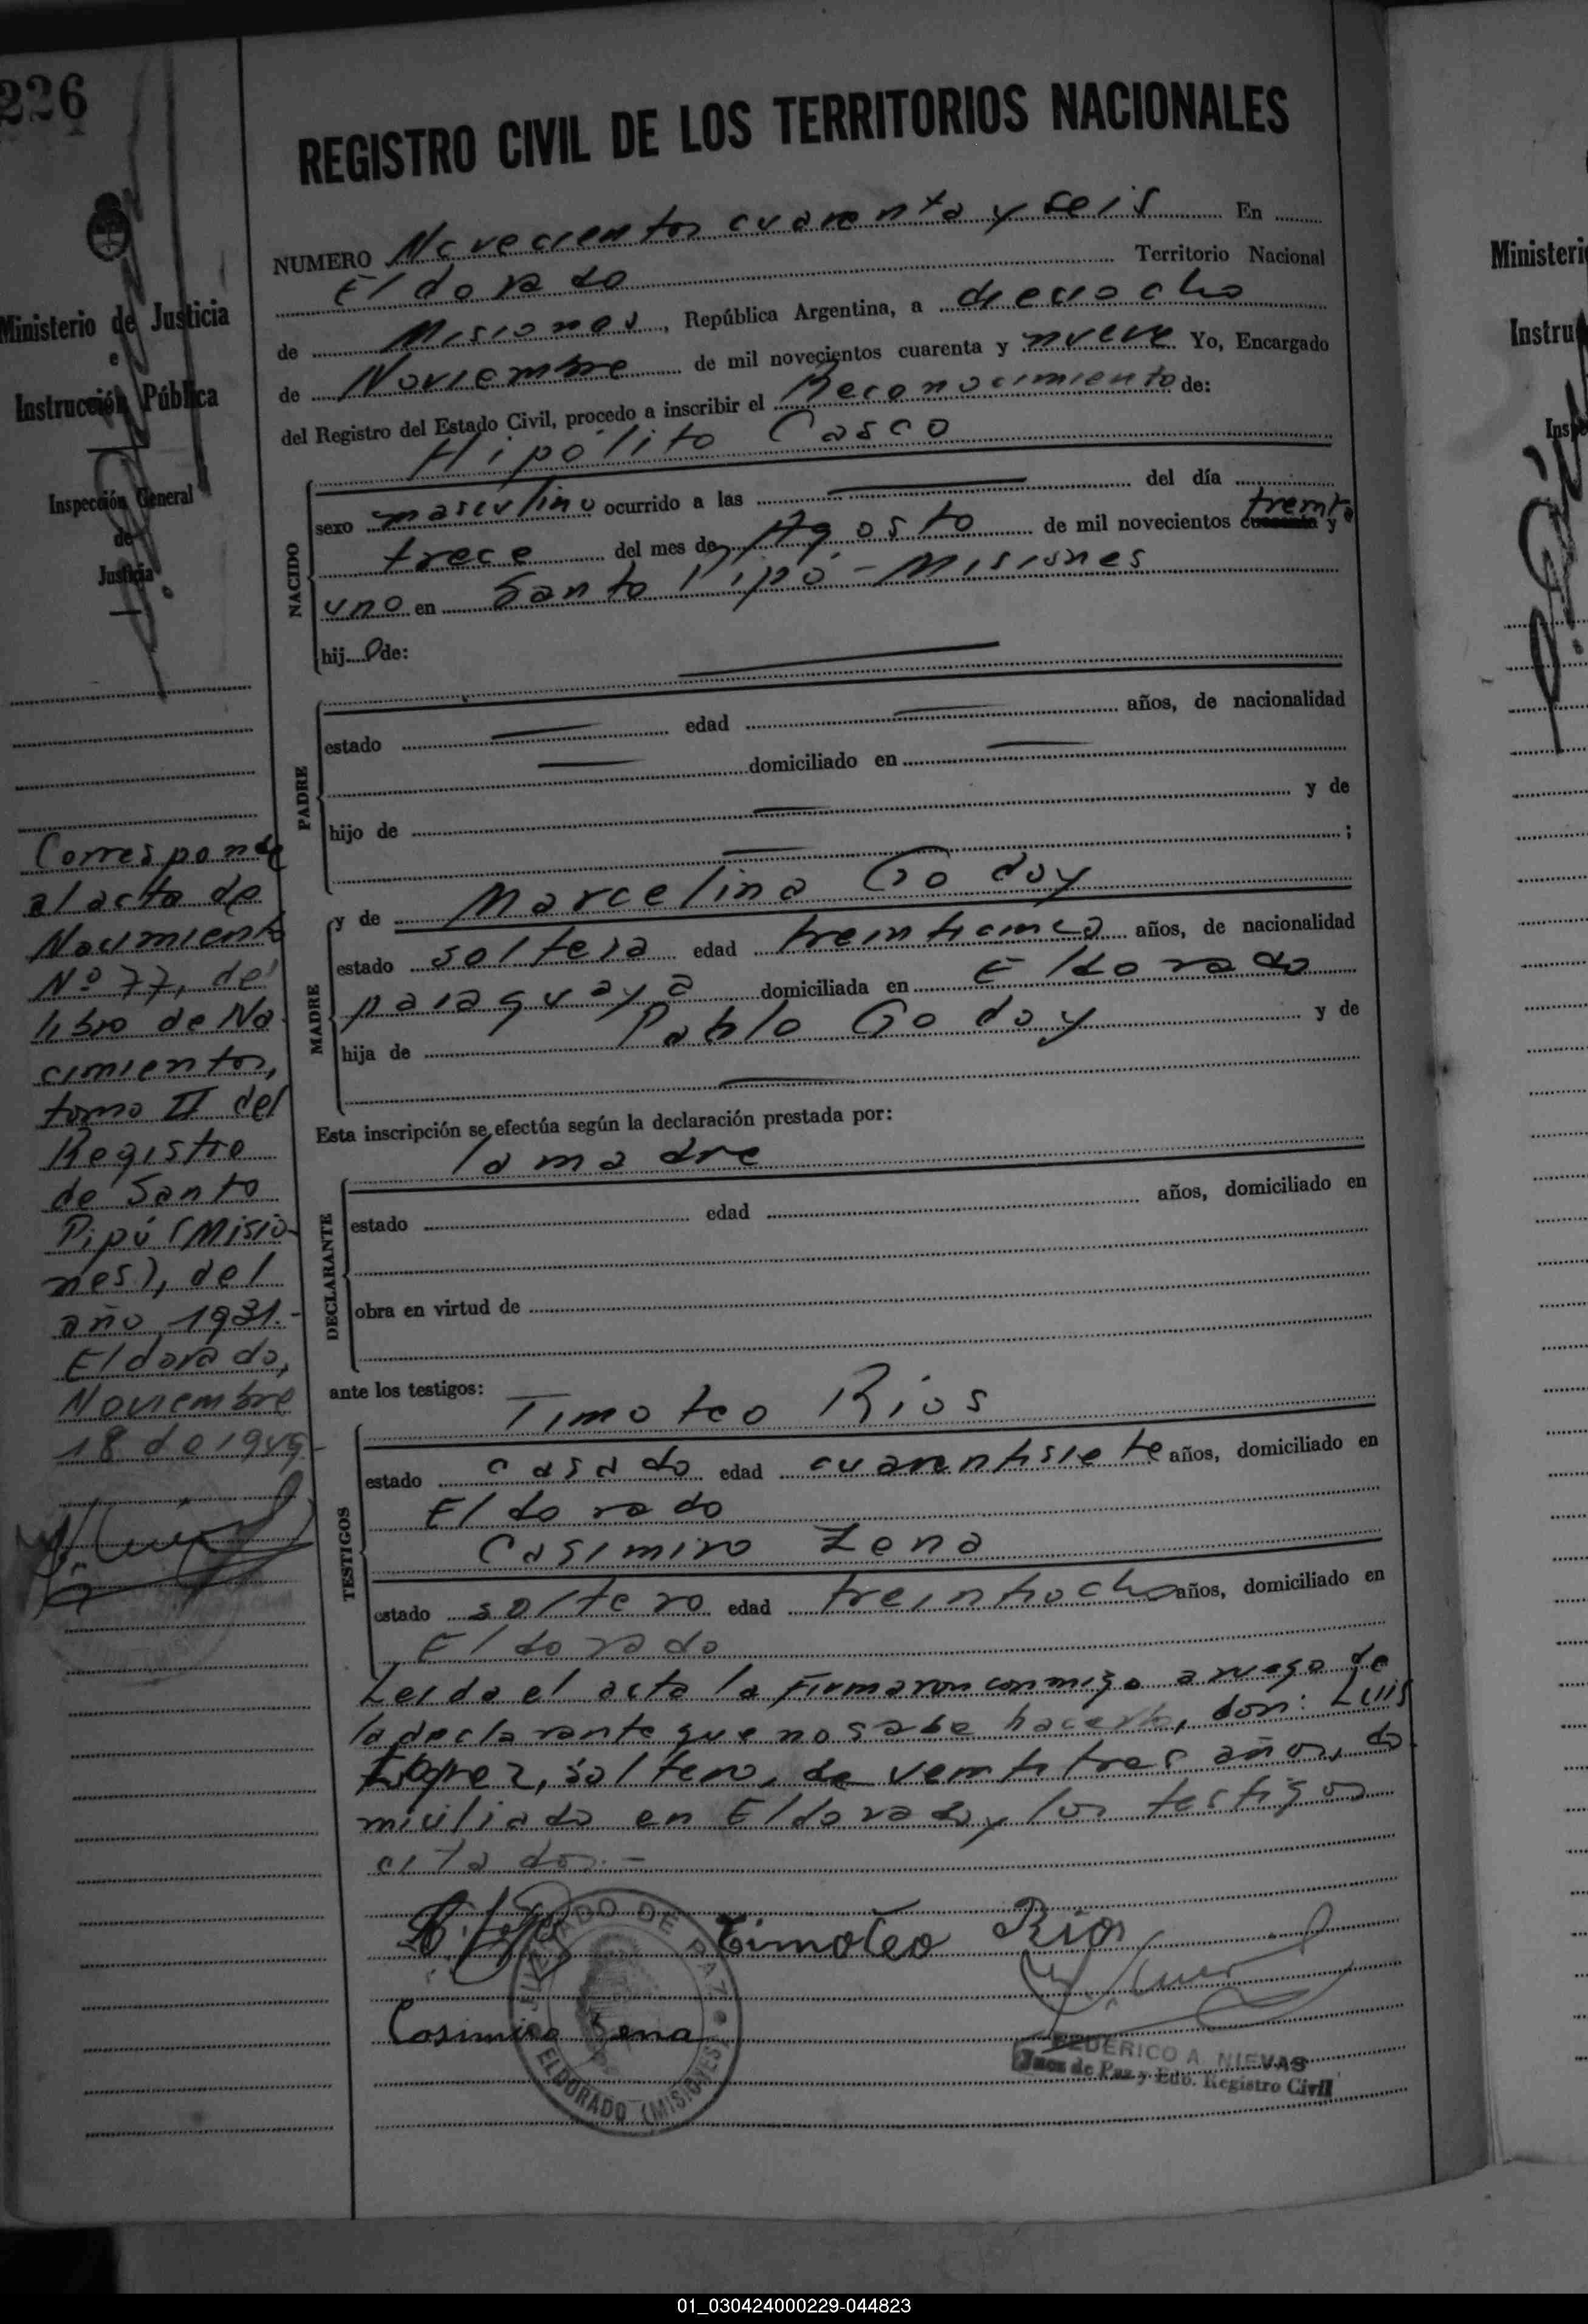 226
Ministerio de Justicia
e
Instrucción Pública
Inspección General
de
Justicia
Corresponde
al acta de
Nacimiento
Nº 77, del
libro de Na
cimientos,
tomo II del
Registro
de Santo
Pipó (Misio-
nes), del
año 1931.-
Eldorado,
Noviembre
18 de 1949-
REGISTRO CIVIL DE LOS TERRITORIOS NACIONALES
NUMERO Novecientos cuarenta y seis En
Eldorado Territorio Nacional
de Misiones, República Argentina, a dieciocho
de Noviembre de mil novecientos cuarenta y nueve Yo, Encargado
del Registro del Estado Civil, procedo a inscribir el Reconocimiento de:
Hipólito Casco
NACIDO
sexo masculino ocurrido a las del día
trece del mes de Agosto de mil novecientos treinta y
uno en Santo Pipó - Misiones
hijo de:
PADRE
estado edad años, de nacionalidad
domiciliado en
hijo de y de
;
MADRE
y de Marcelina Godoy
estado soltera edad treinticinco años, de nacionalidad
paraguaya domiciliada en Eldorado
hija de Pablo Godoy y de
Esta inscripción se efectúa según la declaración prestada por:
la madre
DECLARANTE
estado edad años, domiciliado en
obra en virtud de
ante los testigos:
Timoteo Rios
TESTIGOS
estado casado edad cuarentisiete años, domiciliado en
Eldorado
Casimiro Zena
estado soltero edad treintiocho años, domiciliado en
Eldorado
Leida el acta la firmaron conmigo a ruego de
la declarante que no sabe hacerlo, don: Luis
soltero, de veintitres años, do
miciliado en Eldorado y los testigos
citados.-
Timoteo Rios
Casimiro Sena
JUZGADO DE PAZ
ELDORADO (MISIONES)
FEDERICO A. NIEVAS
Juez de Paz y Edo. Registro Civil
Ministeri
Instru
Insp
01_030424000229-044823